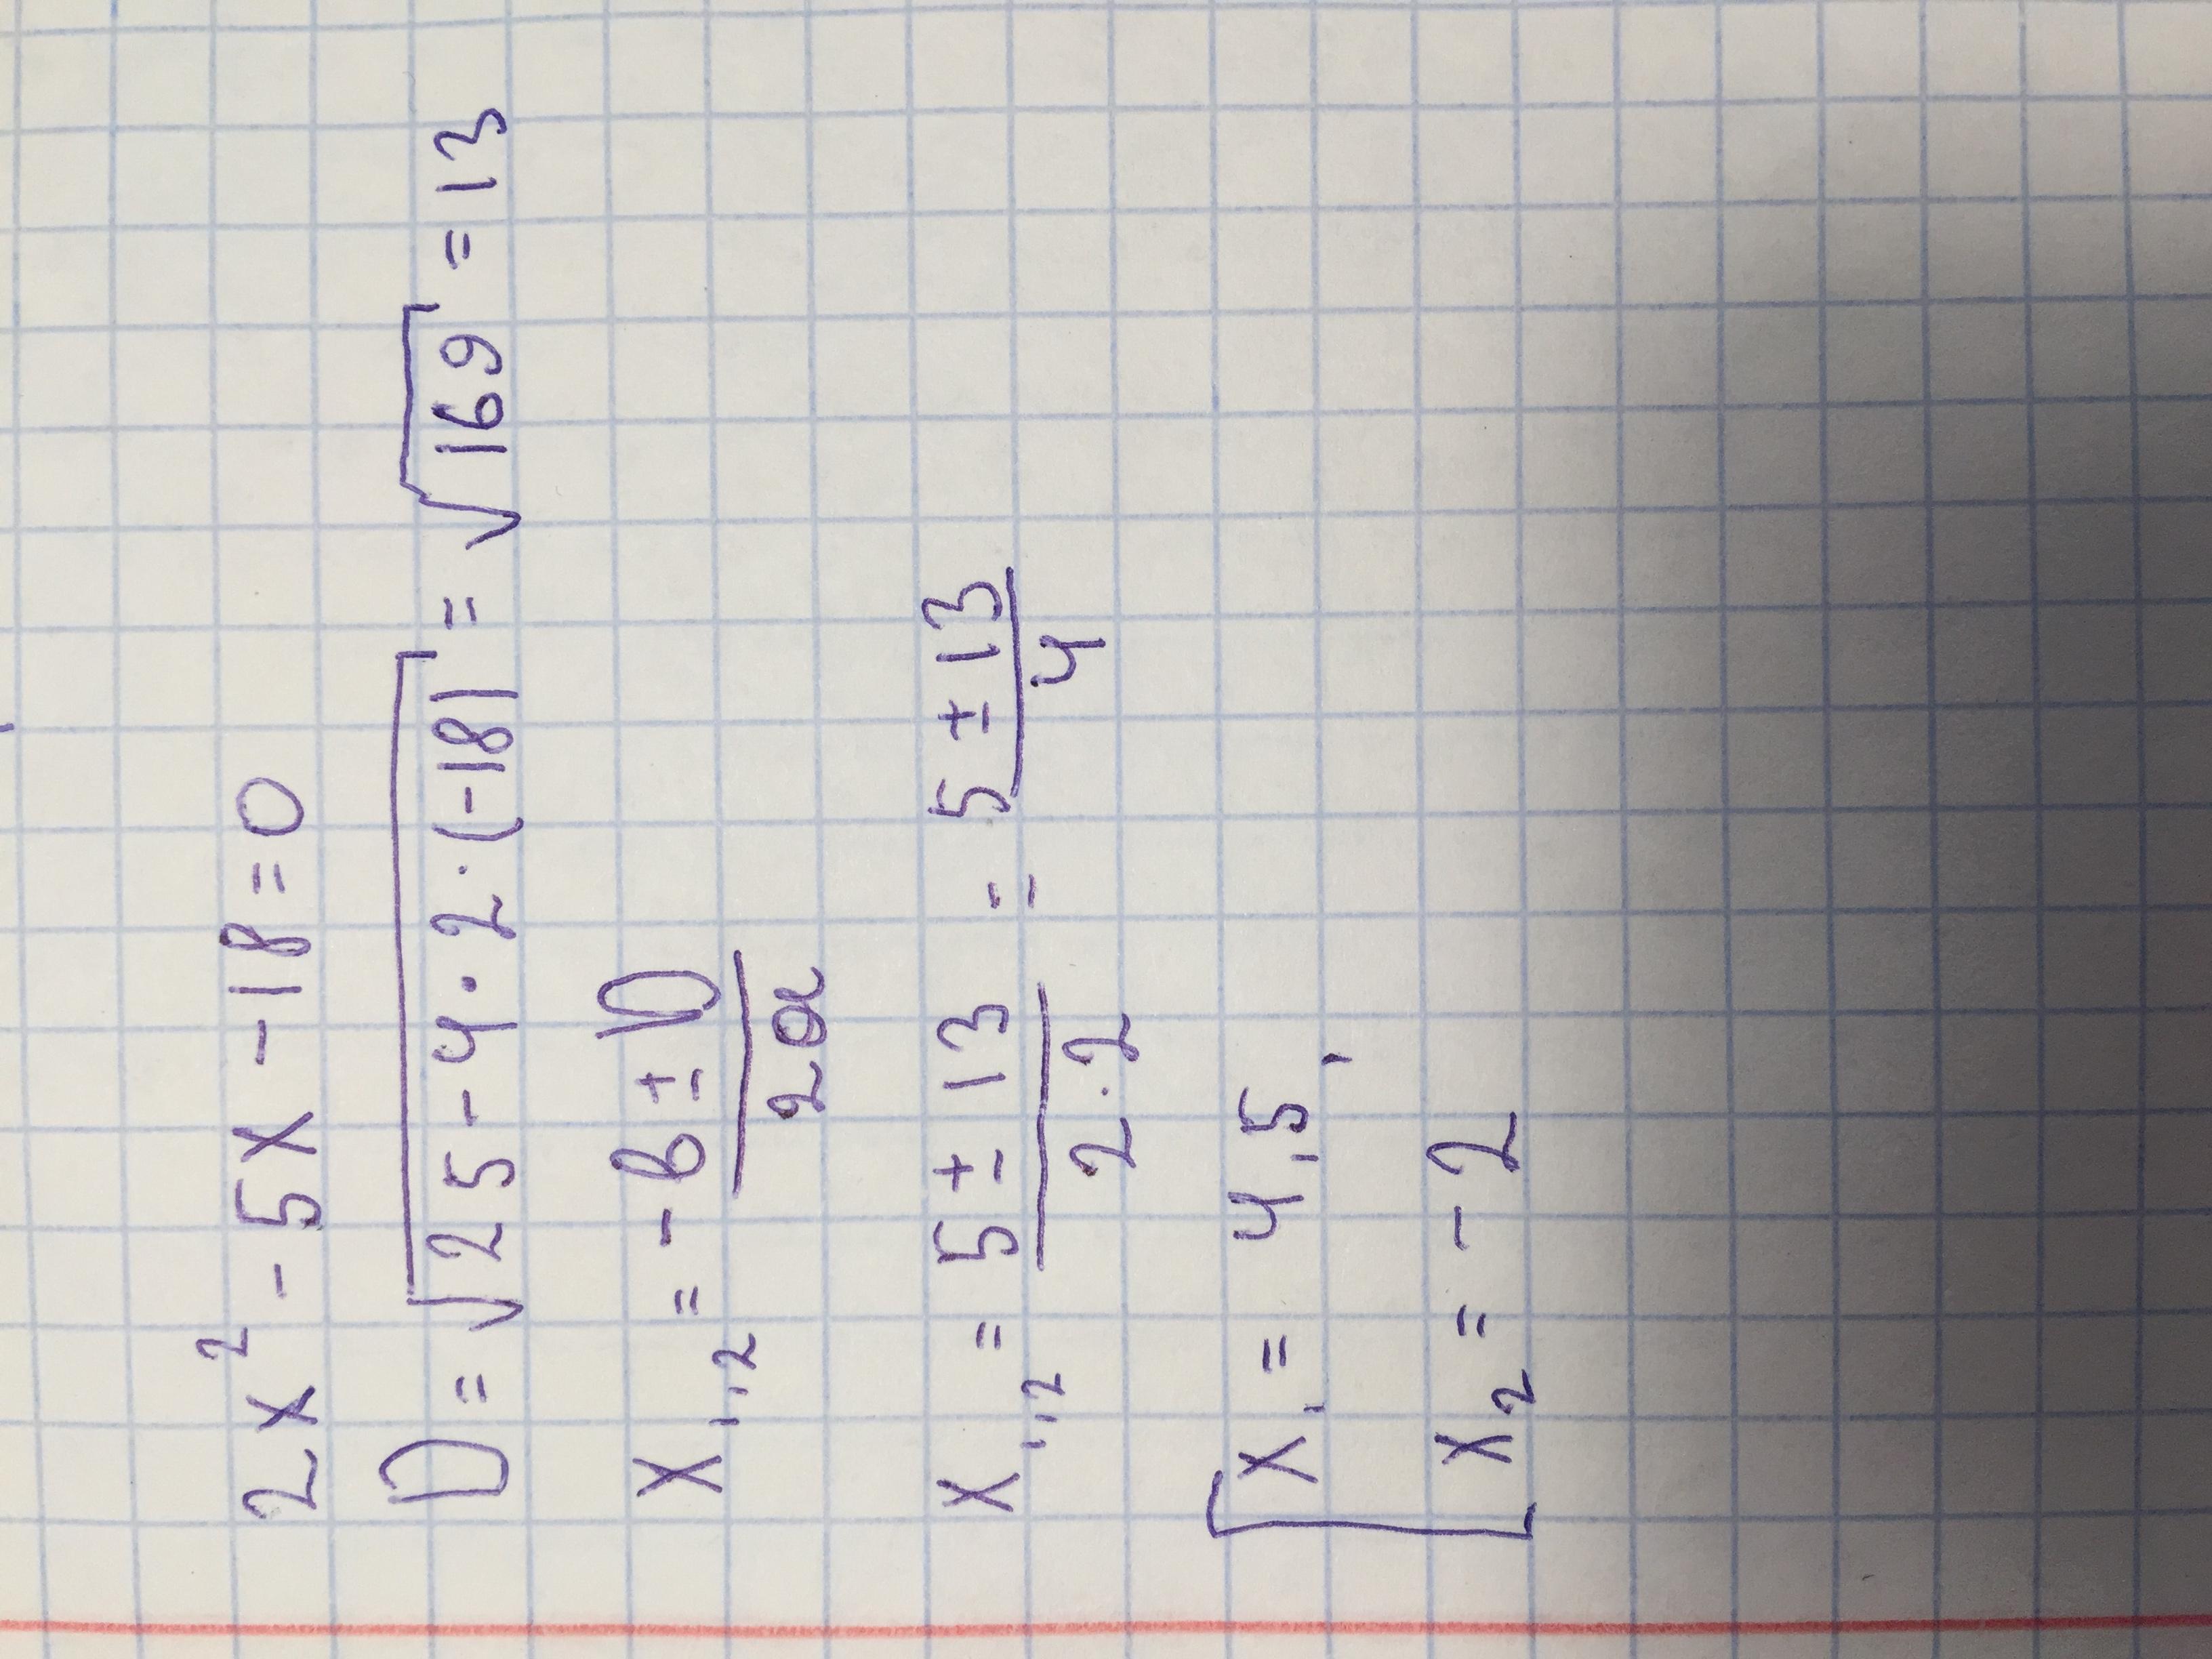 2x² - 5x - 18 = 0
D = √25 - 4 · 2 · (-18) = √169 = 13
x₁,₂ = -в ± D / 2a
x₁,₂ = 5 ± 13 / 2 · 2 = 5 ± 13 / 4
[x₁ = 4,5,
x₂ = -2